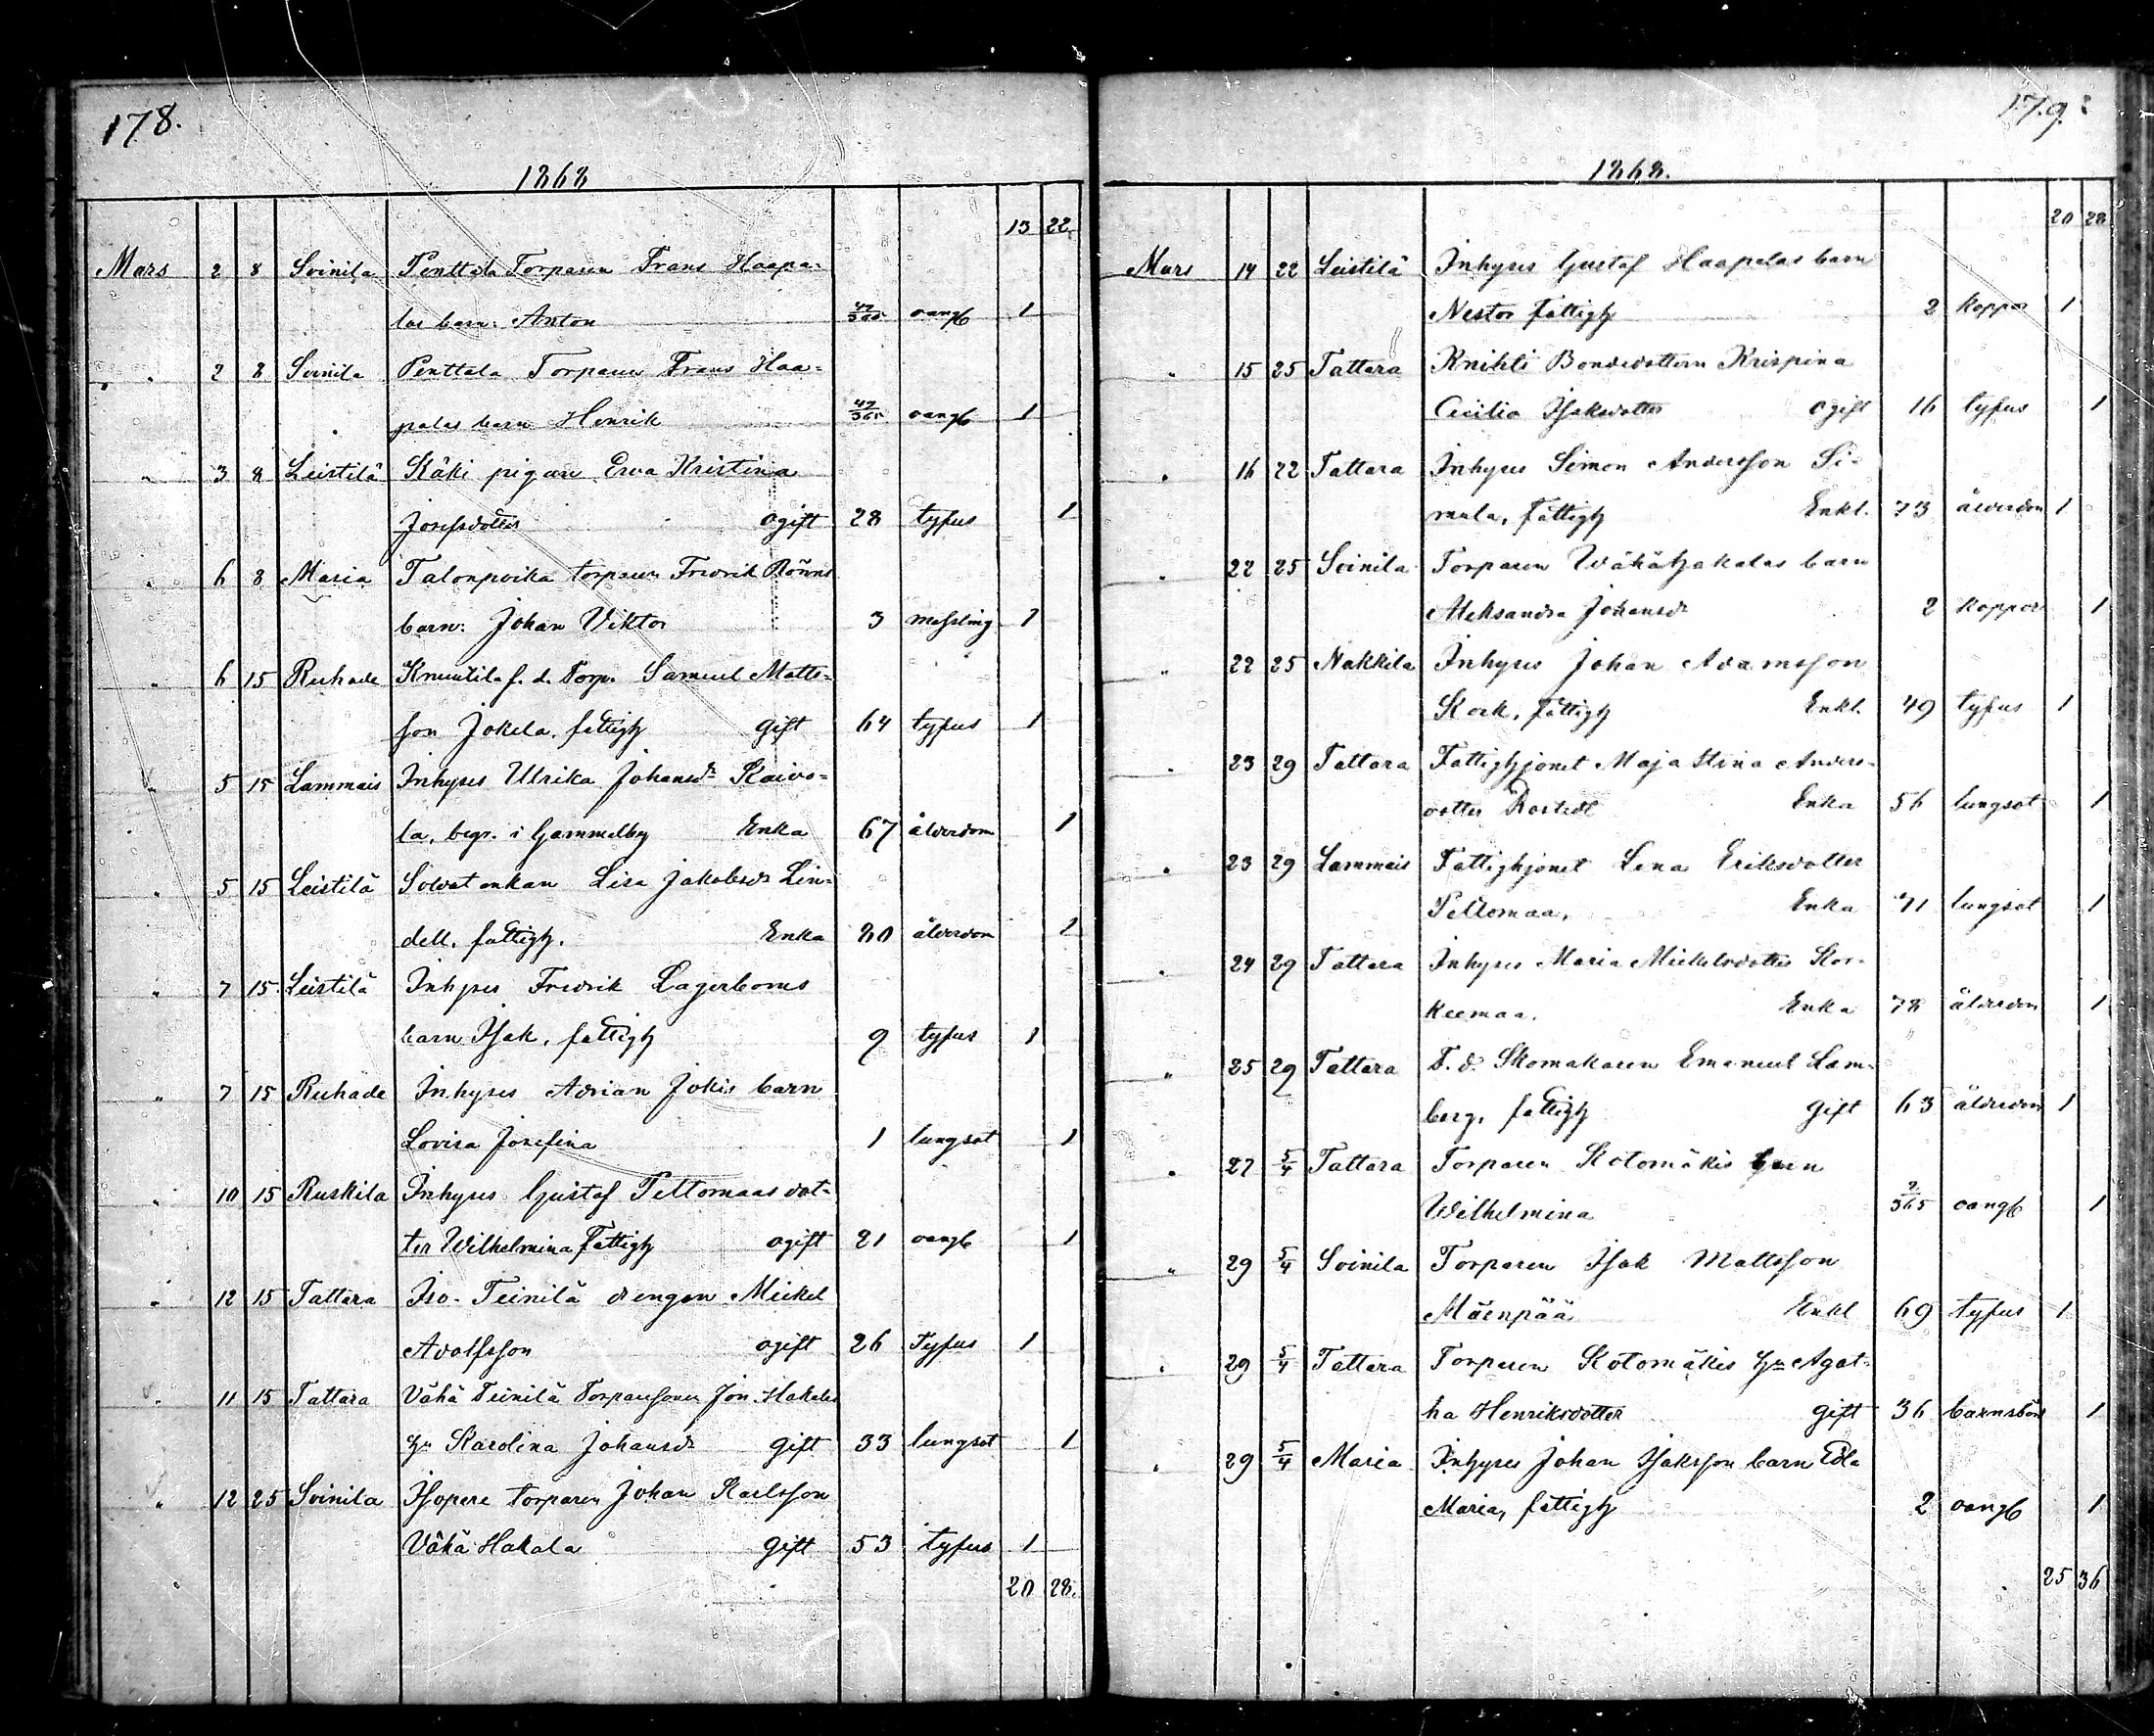 178.
1868
13 22
Mars 2 8 Soinila Penttala Torparen Frans Haapa-
las barn: Anton 47/365 oangf 1
" 2 8 Soinila Penttala Torparen Frans Haa-
palas barn Henrik 47/365 oangf 1
" 3 8 Leistilä Käki pigan Ewa Kristina
Josefsdotter ogift 28 tyfus 1
" 6 8 Maria Talonpoika torparen Fredrik
barn: Johan Viktor 3 messling 1
" 6 15 Ruhade Knuutila f. d. Torp. Samuel Matts-
son Jokela, fattigh gift 64 tyfus 1
" 5 15 Lammais Inhyses Ulrika Johansdr Kaivo-
la, begr. i Gammelby Enka 67 ålderdom 1
" 5 15 Leistilä Soldatenkan Lisa Jakobsdr Lin-
dell, fattigh. Enka 80 ålderdom 1
" 7 15 Leistilä Inhyses Fredrik Lagerboms
barn Isak, fattigh 9 tyfus 1
" 7 15 Ruhade Inhyses Adrian Jokis barn
Lovisa Josefina 1 lungsot 1
" 10 15 Ruskila Inhyses Gustaf Peltomaas dot-
ter Wilhelmina Fattigh ogift 21 oangf 1
" 12 15 Tattara Iso-Teinilä drengen Mickel
Adolfsson ogift 26 Tyfus 1
" 11 15 Tattara Vähä Teinilä Torparesonen Joh. Hakalas
hu Karolina Johansdr gift 33 lungsot 1
" 12 25 Soinila Isopere torparen Johan Karlsson
Vähä Hakala gift 53 tyfus 1
20 28.
179.
1868.
20 28
Mars 14 22 Leistilä Inhyses Gustaf Haapalas barn
Nestor fattigh 2 koppor 1
" 15 25 Tattara Knihti Bondedottern Krispina
Cecilia Isaksdotter ogift 16 tyfus 1
" 16 22 Tattara Inhyses Simon Andersson Si-
mula, fattigh Enkl. 73 ålderdom 1
" 22 25 Soinila Torparen Wähähakalas barn
Aleksandra Johansdr 2 koppor 1
" 22 25 Nakkila Inhyses Johan Adamsson
Kork, fattigh Enkl. 49 tyfus 1
" 23 29 Tattara Fattighjonet Maja Stina Anders-
dotter Rostedt Enka 56 lungsot 1
" 23 29 Lammais Fattighjonet Lena Eriksdotter
Peltomaa, Enka 71 lungsot 1
" 24 29 Tattara Inhyses Maria Mickelsdotter Kor-
keemaa. Enka 78 ålderdom 1
" 25 29 Tattara F. d. Skomakaren Emanuel Lam-
berg, fattigh gift 63 ålderdom 1
" 27 5/4 Tattara Torparen Kotomäkis barn
Wilhelmina 2/365 oangf 1
" 29 5/4 Soinila Torparen Isak Mattsson
Mäenpää Enkl 69 tyfus 1
" 29 5/4 Tattara Torparen Kotomäkis hu Agat-
ha Henriksdotter gift 36 barnsbörd 1
" 29 5/4 Maria Inhyses Johan Isaksson barn Eda
Maria, fattigh 2 oangf 1
25 36